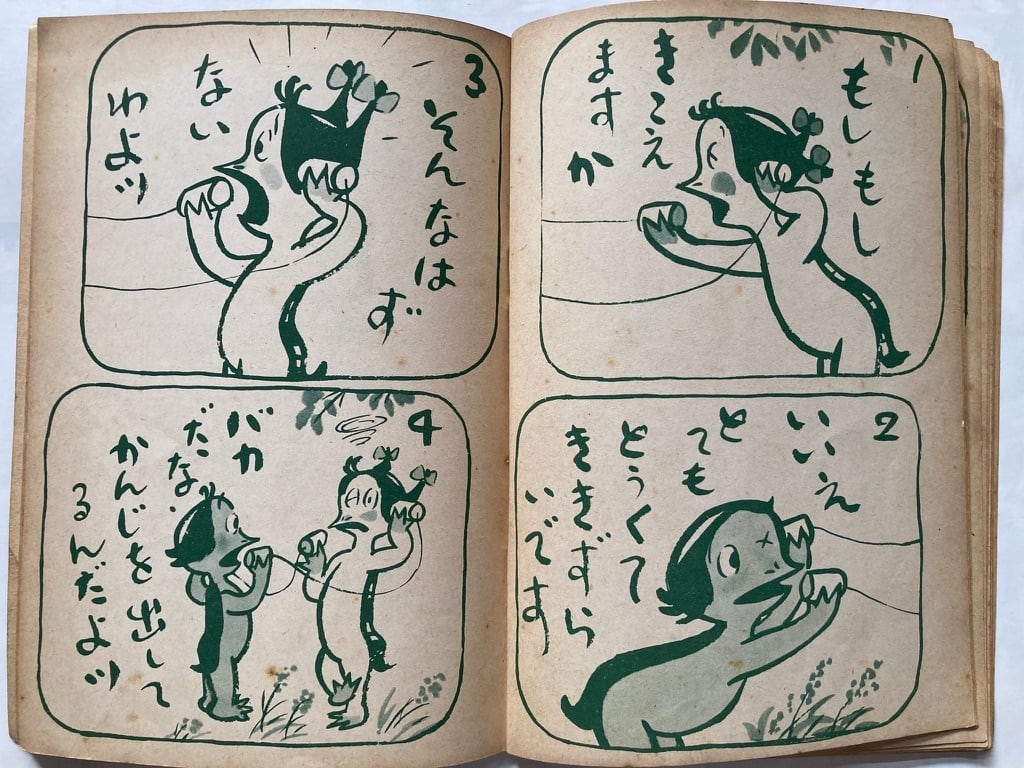 1
もしもし
きこえ
ます
か
2
いいえ
と
ても
とうくて
ききずら
いです
3
そんなは
ず
ない
わよッ
4
バカ
だな、
かんじを出して
るんだよッ